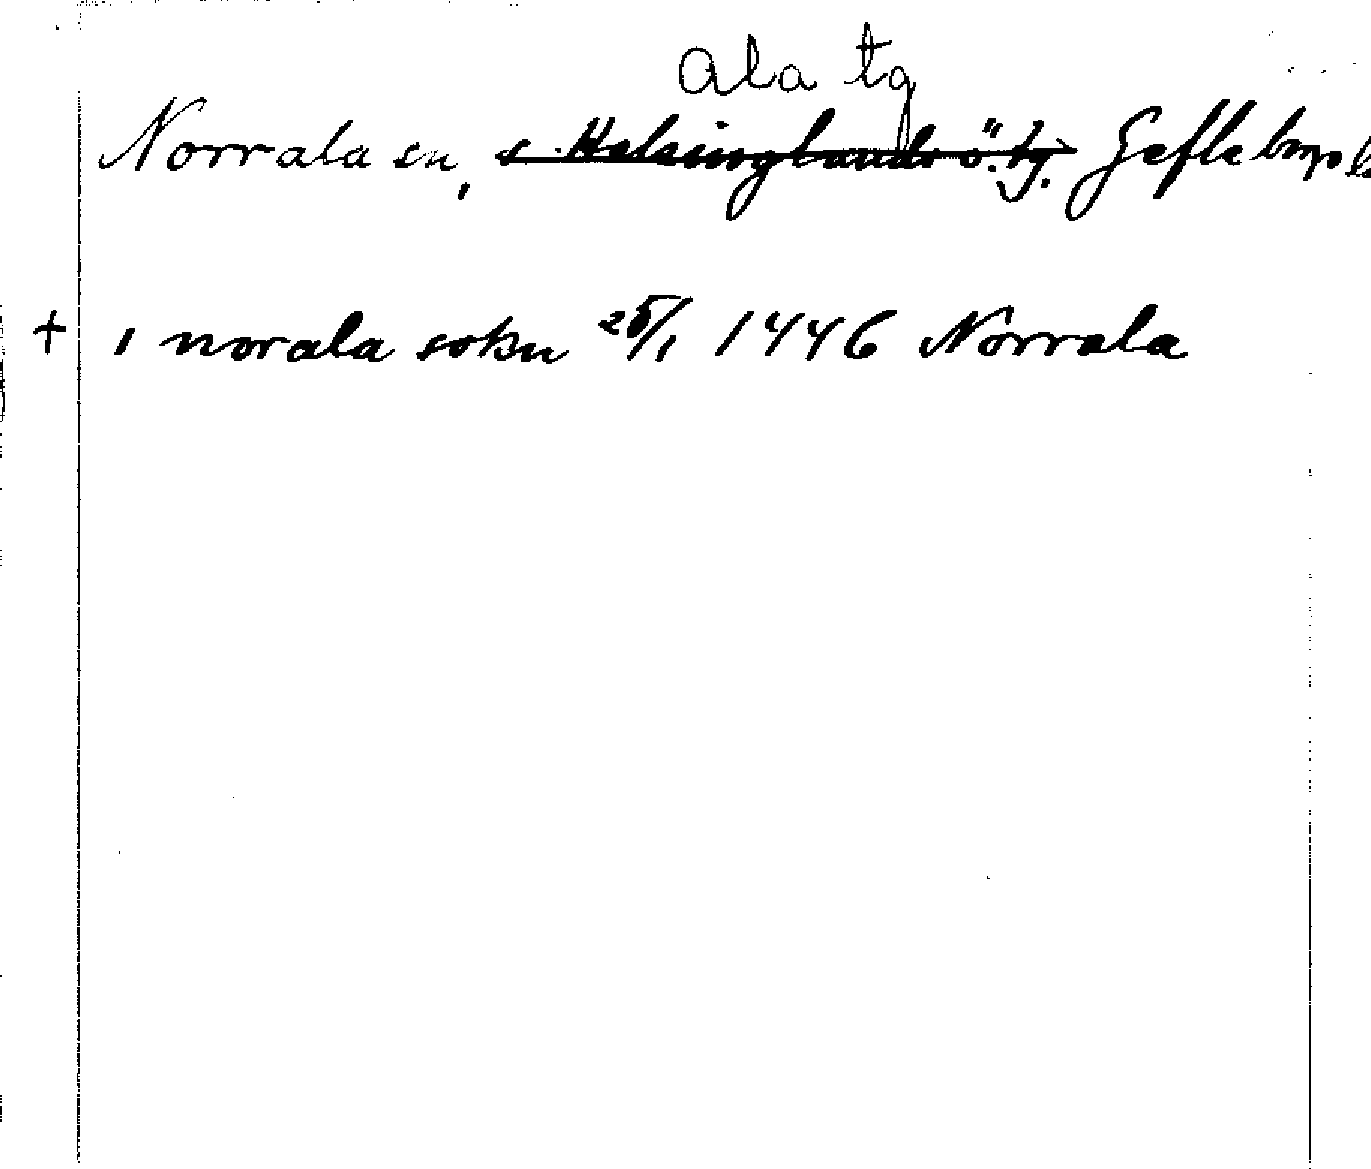 Ala tg
Norrala sn, s. Helsinglands ö. tg. Gefleborgs l
+ i norala sokn 25/1 1446 Norrala